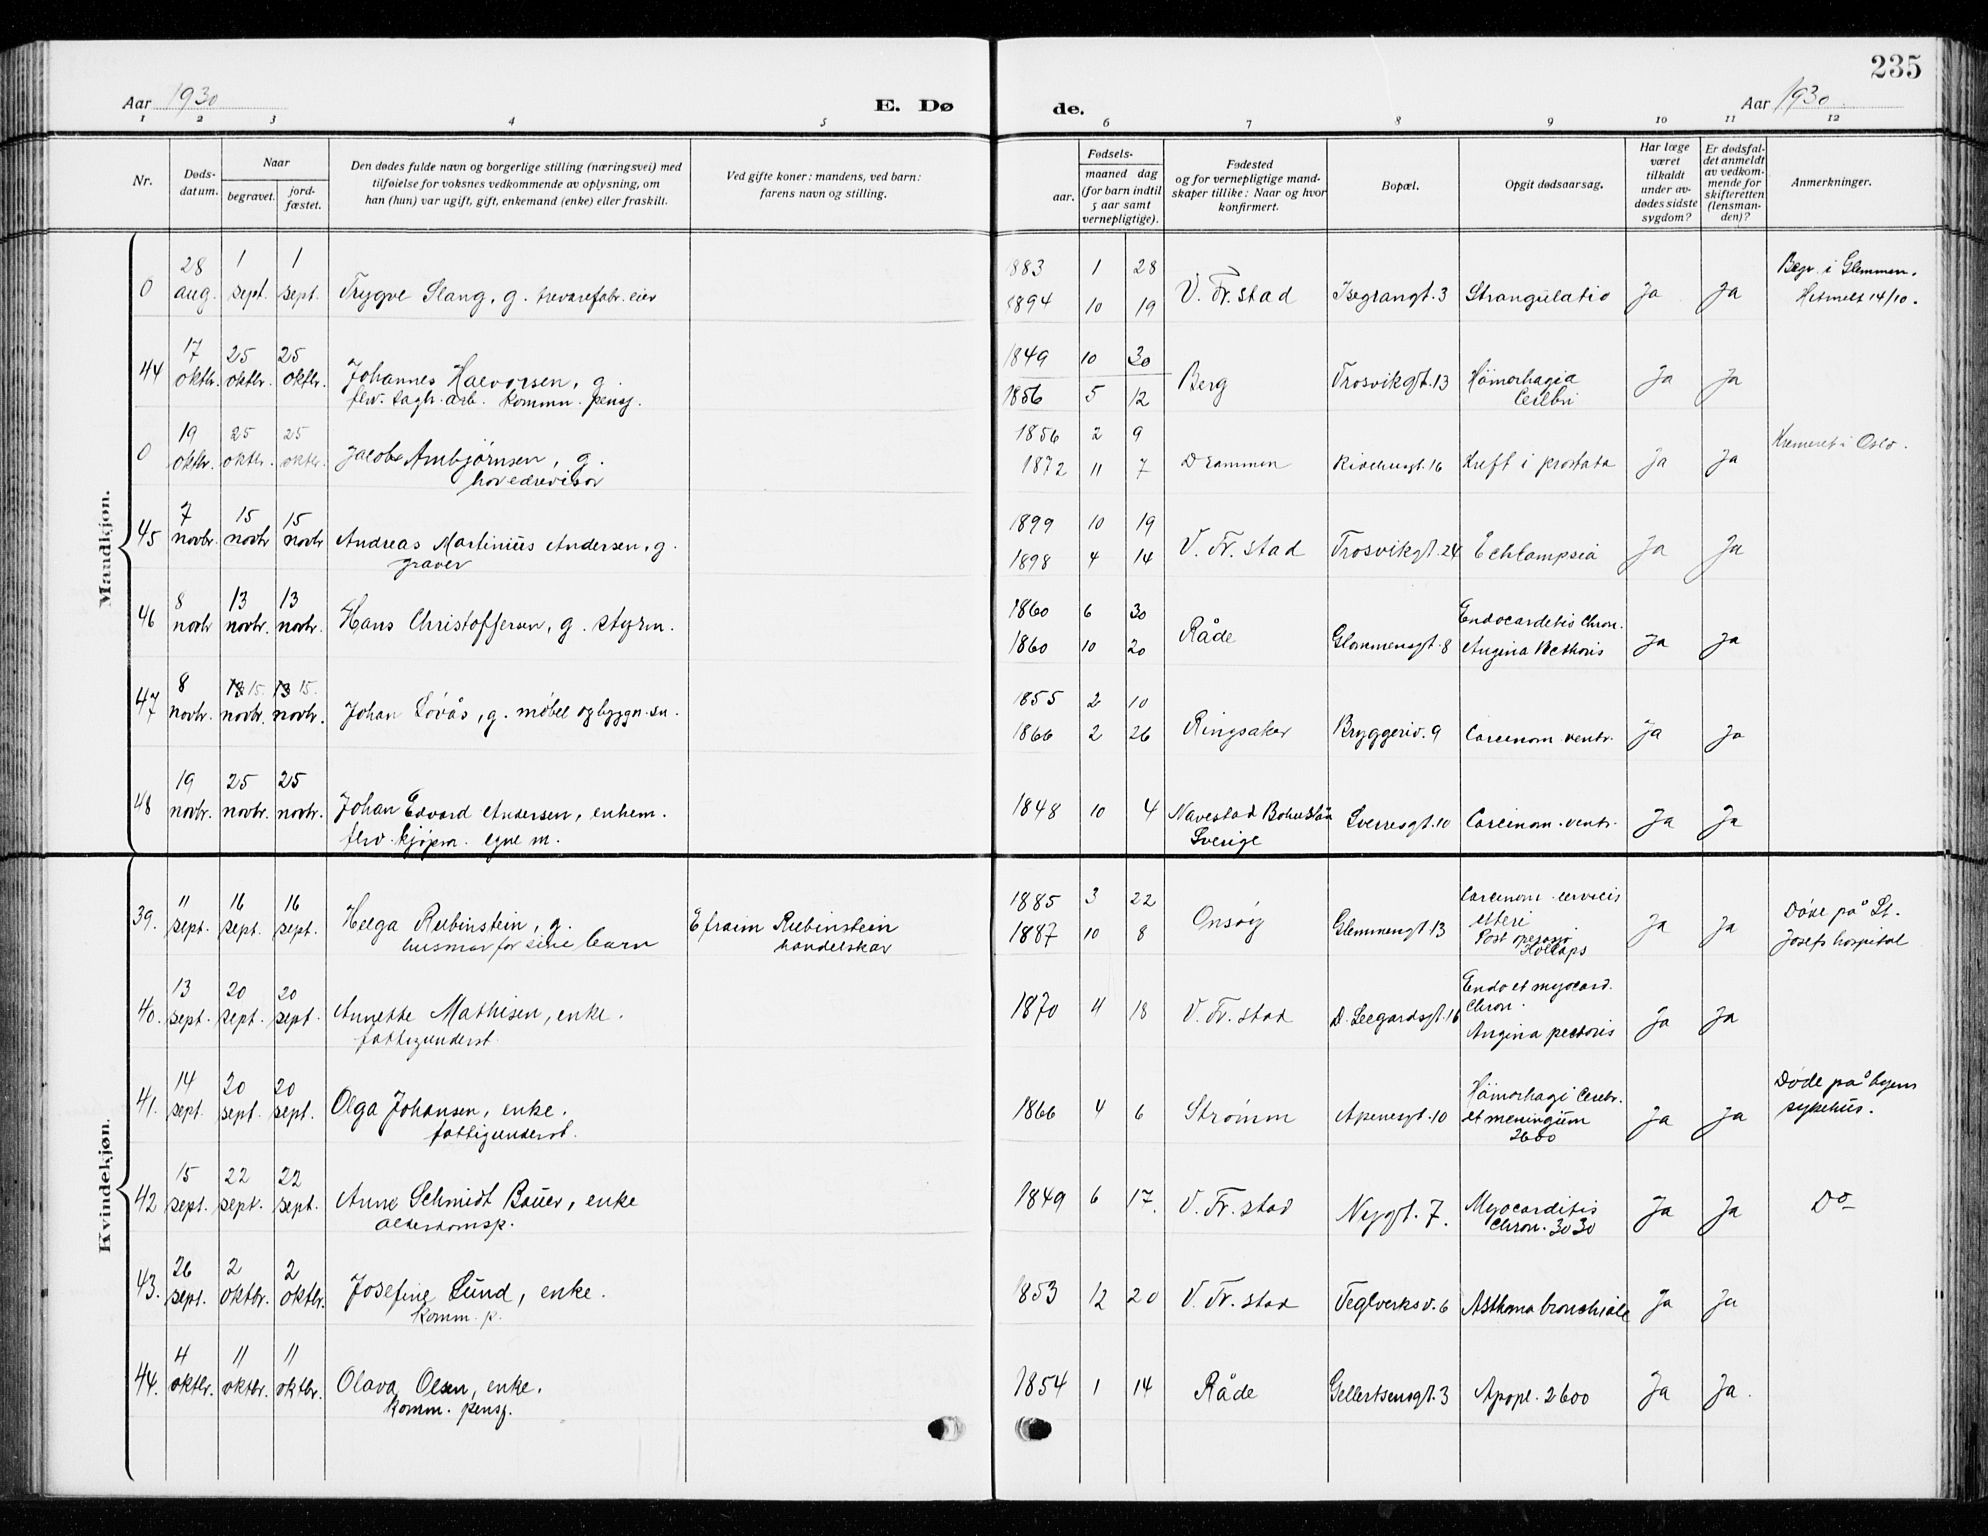 235
Aar 1930 E. Dø de. Aar 1930
1 2 3 4 5 6 7 8 9 10 11 12
Nr.
Døds-
datum.
Naar
begravet.
jord-
fæstet.
Den dødes fulde navn og borgerlige stilling (næringsvei) med
tilføielse for voksnes vedkommende av oplysning, om
han (hun) var ugift, gift, enkemand (enke) eller fraskilt.
Ved gifte koner: mandens, ved barn:
farens navn og stilling.
Fødsels-
aar.
maaned dag
(for barn indtil
5 aar samt
vernepligtige).
Fødested
og for vernepligtige mand-
skaper tillike: Naar og hvor
konfirmert.
Bopæl.
Opgit dødsaarsag.
Har læge
været
tilkaldt
under av-
dødes sidste
sygdom?
Er dødsfal-
det anmeldt
av vedkom-
mende for
skifteretten
(lensman-
den)?
Anmerkninger.
Mandkjøn.
28 1 1 1883 1 28 Begr. i Glemmen.
0 aug. sept. sept. Trygve Slang, g. trevarefabr. eier 1894 10 19 V. Fr.stad Isegrangt. 3 Strangulatio Ja Ja Hitmelt 14/10.
17 25 25 1849 10 30
44 oktbr. oktbr. oktbr. Johannes Halvorsen, g. Berg Trosvikgt. 13 Hämorhagia Ja Ja
flw. sagbr. arb. komm. pensj. 1856 5 12 Cerebri
19 25 25 1856 2 9 Kremeret i Oslo.
0 oktbr. oktbr. oktbr. Jacob Ambjørnsen, g. 1872 11 7 Drammen Kirkensgt. 16 Kreft i prostata Ja Ja
hovedrevisor
7 15 15 1899 10 19
45 novbr. novbr novbr Andreas Martinius Andersen, g. 1898 4 14 V. Fr.stad Trosvikgt. 24 Echlampsia Ja Ja
graver
8 13 13 1860 6 30 Endocarditis Chron.
46 novbr novbr. novbr. Hans Christoffersen, g. styrm. 1860 10 20 Råde Glommensgt. 8 Angina Pectoris Ja Ja
8 13 15. 13 15. 1855 2 10
47 novbr. novbr. novbr. Johan Løvås, g. møbel og byggn. sn. 1866 2 26 Ringsaker Bryggeriv. 9 Carcinom. ventr. Ja Ja
19 25 25
48 novbr. novbr. novbr. Johan Edvard Andersen, enkem. 1848 10 4 Navestad Bohuslän Sverresgt. 10 Carcinom. ventr. Ja Ja
flw. kjøpm. egne m. Sverige
Kvindekjøn.
11 16 16 1885 3 22 Carcinom. cervicis
39. sept. sept. sept. Helga Rubinstein, g. Efraim Rubinstein Onsøy Glemmengt. 13 utteri Ja Ja Døde på St.
husmor for sine barn handelskar 1887 10 8 Post operasj. Josefs hospital
Kollaps
13 20 20 Endo et myocard.
40. sept. sept. sept. Annette Mathisen, enke. 1870 4 18 V. Fr.stad D. Leegardsgt. 16 Chron. Ja Ja
fattigunderst. Angina pectoris
14 20 20 Hämorhagi Cerebr. Døde på byens
41. sept. sept. sept. Olga Johansen, enke. 1866 4 6 Strømm Apenesgt. 10 et meningium Ja Ja sykehus.
fattigunderst. 2600
15 22 22
42 sept. sept. sept. Anna Schmidt Bauer, enke 1849 6 17. V. Fr.stad Nygt. 7. Myocarditis Ja Ja Do
alderdomsp. Chron. 3030
26 2 2
43. sept. oktbr. oktbr. Josefine Lund, enke. 1853 12 20 V. Fr.stad Teglverksv. 6 Asthma bronchiale Ja Ja
komm. p.
4 11 11
44. oktbr. oktbr. oktbr. Olava Olsen, enke. 1854 1 14 Råde Gellertsensgt. 3 Apopl. 2600 Ja Ja.
komm. pensj.